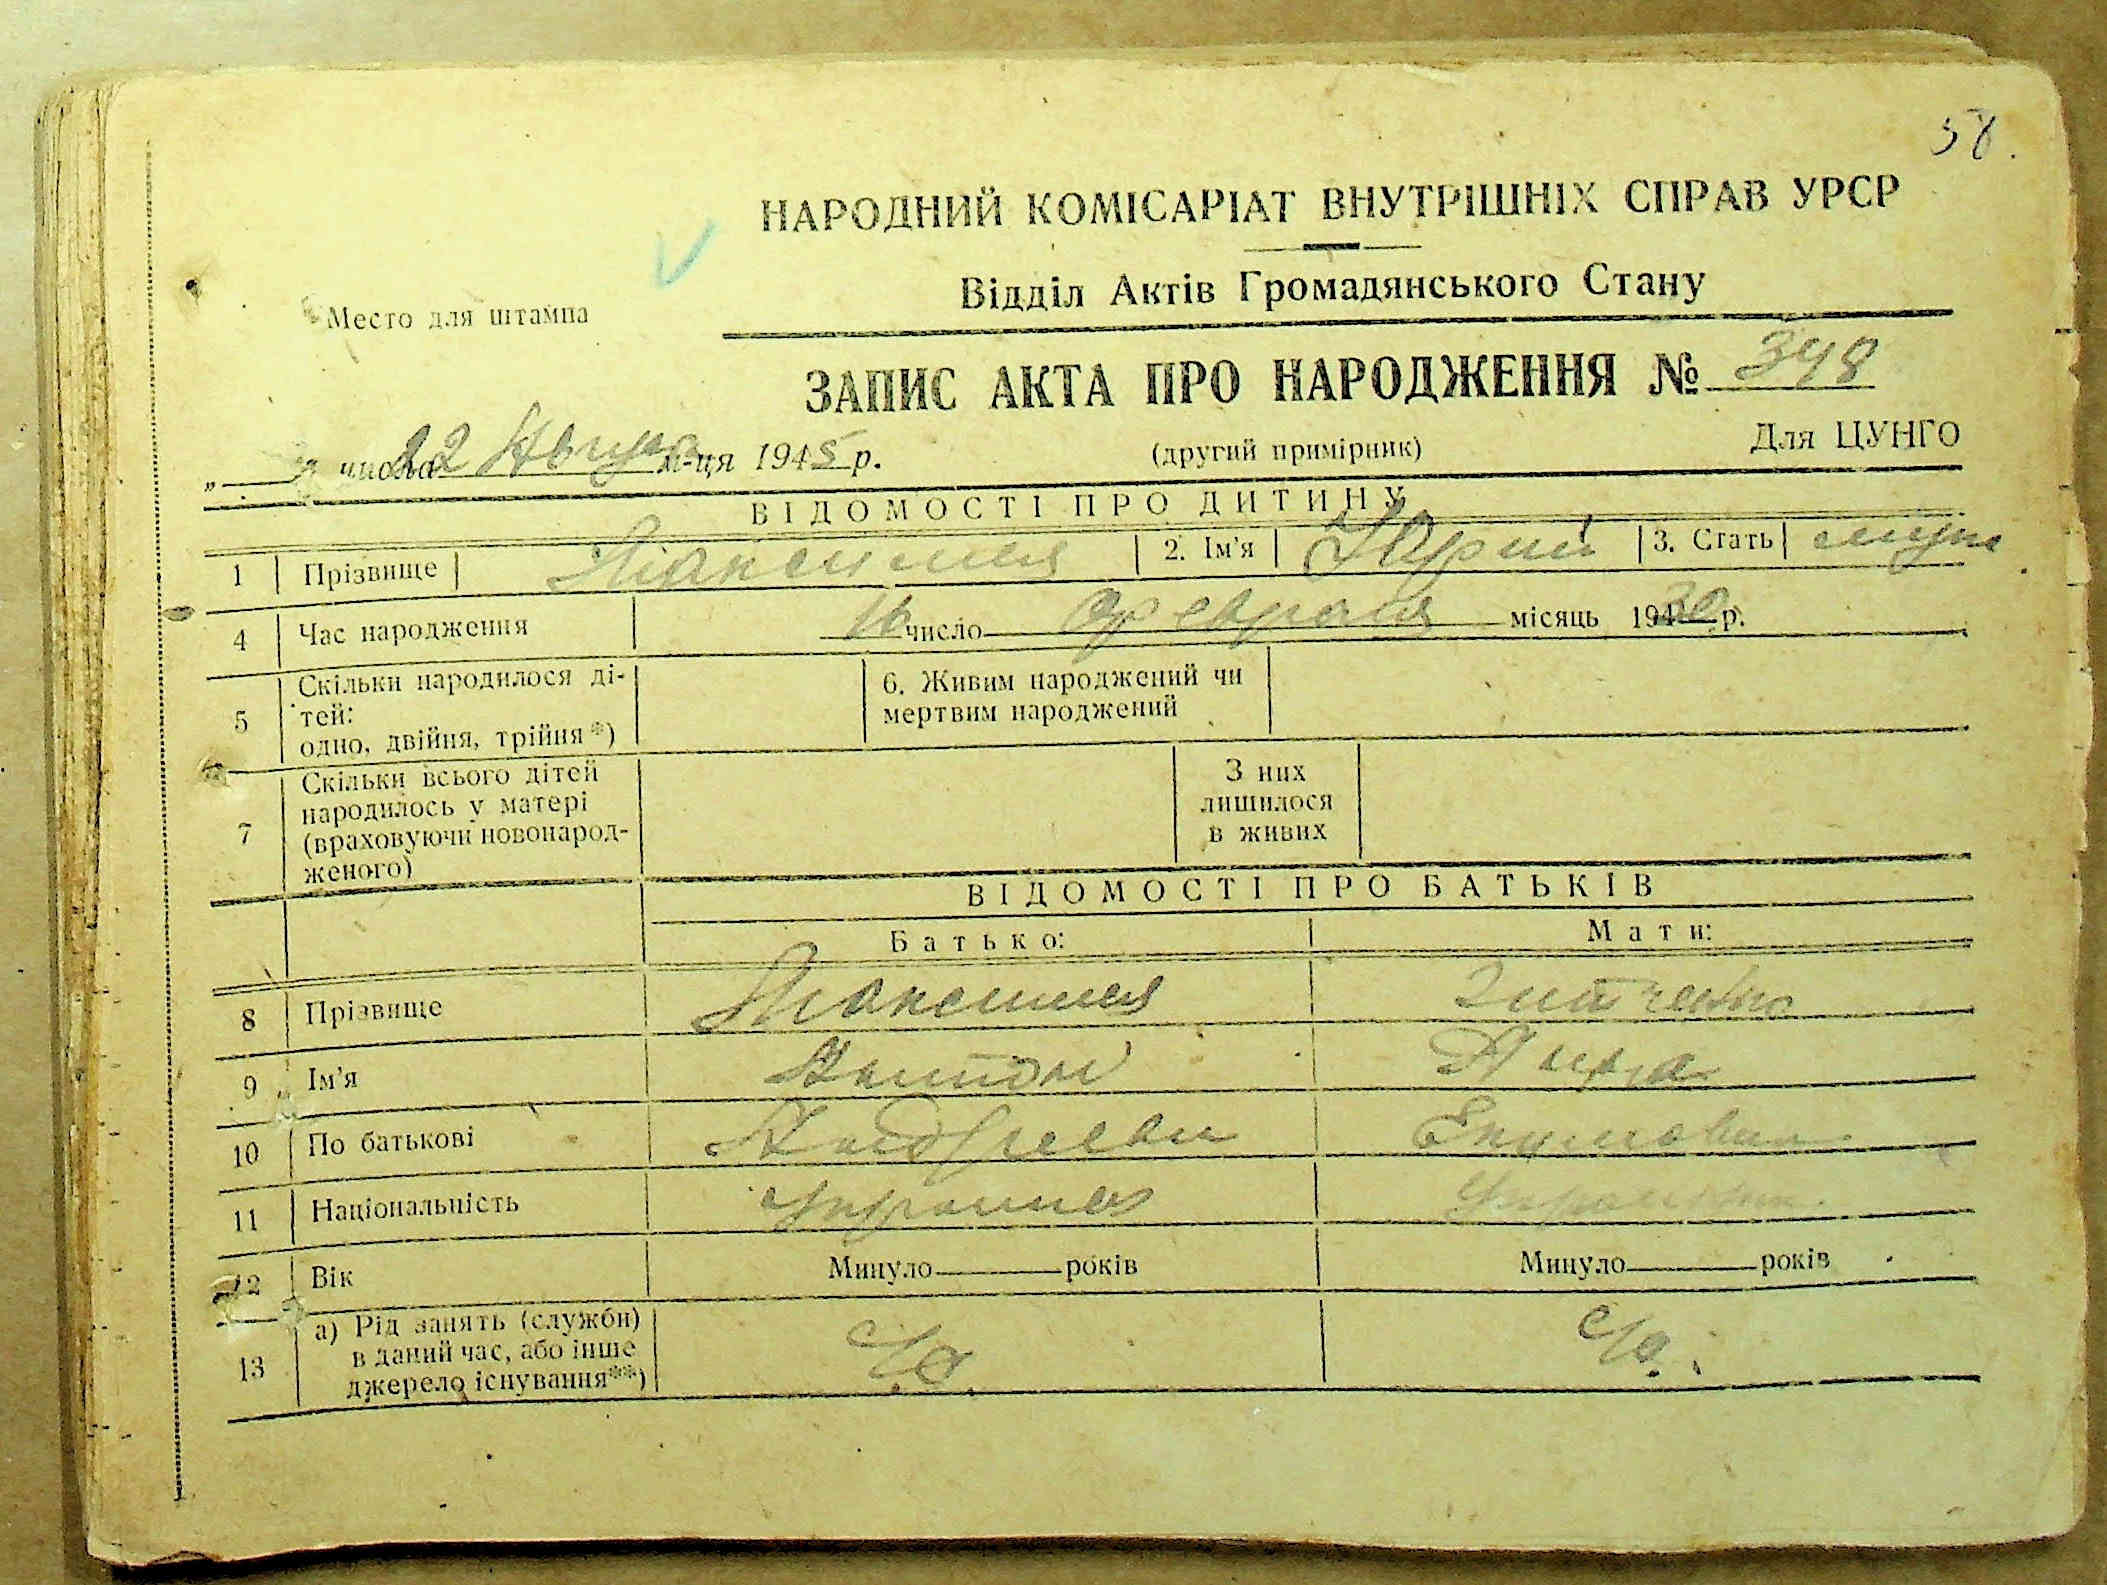 58.
НАРОДНИЙ КОМІСАРІАТ ВНУТРІШНІХ СПРАВ УРСР
Відділ Актів Громадянського Стану
Место для штампа
ЗАПИС АКТА ПРО НАРОДЖЕННЯ № 348
„ числа 22 Августа м-ця 1945 р. (другий примірник) Для ЦУНГО
ВІДОМОСТІ ПРО ДИТИНУ
1 Прізвище 2. Ім'я Юрий 3. Стать муж
4 Час народження 16 число Февраля місяць 1930 р.
5 Скільки народилося ді-
тей:
одно, двійня, трійня*) 6. Живим народжений чи
мертвим народжений
7 Скільки всього дітей
народилось у матері
(враховуючи новонарод-
женого) З них
лишилося
в живих
ВІДОМОСТІ ПРО БАТЬКІВ
Батько: Мати:
8 Прізвище
9 Ім'я Антон
10 По батькові Андреевич Екимовна
11 Національність Украинец Украинка
12 Вік Минуло років Минуло років
13 а) Рід занять (служби)
в даний час, або інше
джерело існування**) с/о. с/о.